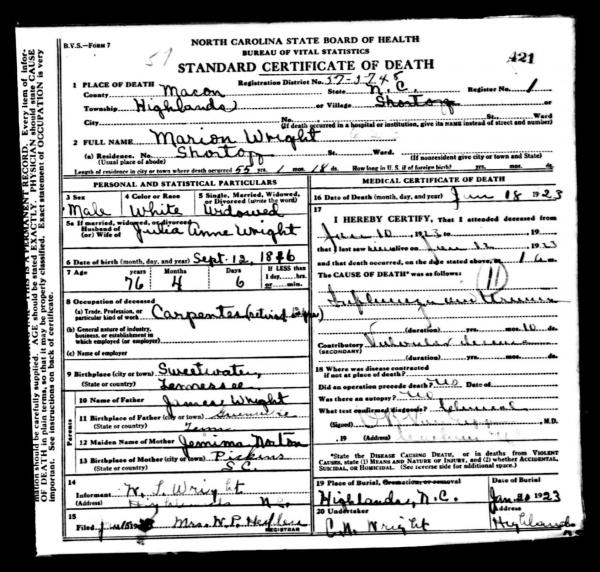 NORTH CAROLINA STATE BOARD OF HEALTH
B.V.S.—FORM 7
BUREAU OF VITAL STATISTICS
57
STANDARD CERTIFICATE OF DEATH
421
1 PLACE OF DEATH
Registration District No. 57-3745
Register No. 1
County Macon
State N.C.
Township Highlands
or Village Shortoff
City No. St., Ward
(If death occurred in a hospital or institution, give its NAME instead of street and number)
2 FULL NAME Marion Wright
(a) Residence. No. Shortoff St. Ward.
(Usual place of abode) (If nonresident give city or town and State)
Length of residence in city or town where death occurred 55 yrs. 1 mos. 18 ds. How long in U. S. if of foreign birth? yrs. mos. ds.
PERSONAL AND STATISTICAL PARTICULARS
3 Sex Male
4 Color or Race White
5 Single, Married, Widowed, or Divorced (write the word) Widowed
5a If married, widowed, or divorced
Husband of
(or) Wife of Julia Anne Wright
6 Date of birth (month, day, and year) Sept. 12, 1846
7 Age Years Months Days If LESS than
1 day, hrs.
or min.
76 4 6
8 Occupation of deceased
(a) Trade, Profession, or
particular kind of work Carpenter
(b) General nature of industry,
business, or establishment in
which employed (or employer)
(c) Name of employer
9 Birthplace (city or town) Sweetwater,
(State or country) Tennessee
Parents
10 Name of Father James Wright
11 Birthplace of Father (city or town)
(State or country) Tenn
12 Maiden Name of Mother Jemima Norton
13 Birthplace of Mother (city or town) Pickens
(State or country) S.C.
14
Informant W. S. Wright
(Address) Highlands N.C.
15
Filed Mrs. W. P.
REGISTRAR
MEDICAL CERTIFICATE OF DEATH
16 Date of Death (month, day, and year) Jan 18 1923
17
I HEREBY CERTIFY, That I attended deceased from
Jan 10, 1923, to , 19
that I last saw alive on Jan 12, 1923
and that death occurred, on the date stated above, at 1 a m.
The CAUSE OF DEATH* was as follows:
11
Influenza
(duration) yrs. mos. 10 ds.
Contributory Valvular
(SECONDARY)
(duration) yrs. mos. ds.
18 Where was disease contracted
if not at place of death?
Did an operation precede death? no Date of
Was there an autopsy? no
What test confirmed diagnosis? Clinical
(Signed) M.D.
, 19 (Address)
*State the DISEASE CAUSING DEATH, or in deaths from VIOLENT
CAUSES, state (1) MEANS AND NATURE OF INJURY, and (2) whether ACCIDENTAL,
SUICIDAL, or HOMICIDAL. (See reverse side for additional space.)
19 Place of Burial, Cremation or removal
Date of Burial
Highlands, N.C.
Jan. 20 1923
20 Undertaker
Address
C. A. Wright
Highlands
PERMANENT RECORD. Every item of infor-
mation should be carefully supplied. AGE should be stated EXACTLY. PHYSICIAN should state CAUSE
OF DEATH in plain terms, so that it may be properly classified. Exact statement of OCCUPATION is very
important. See instructions on back of certificate.